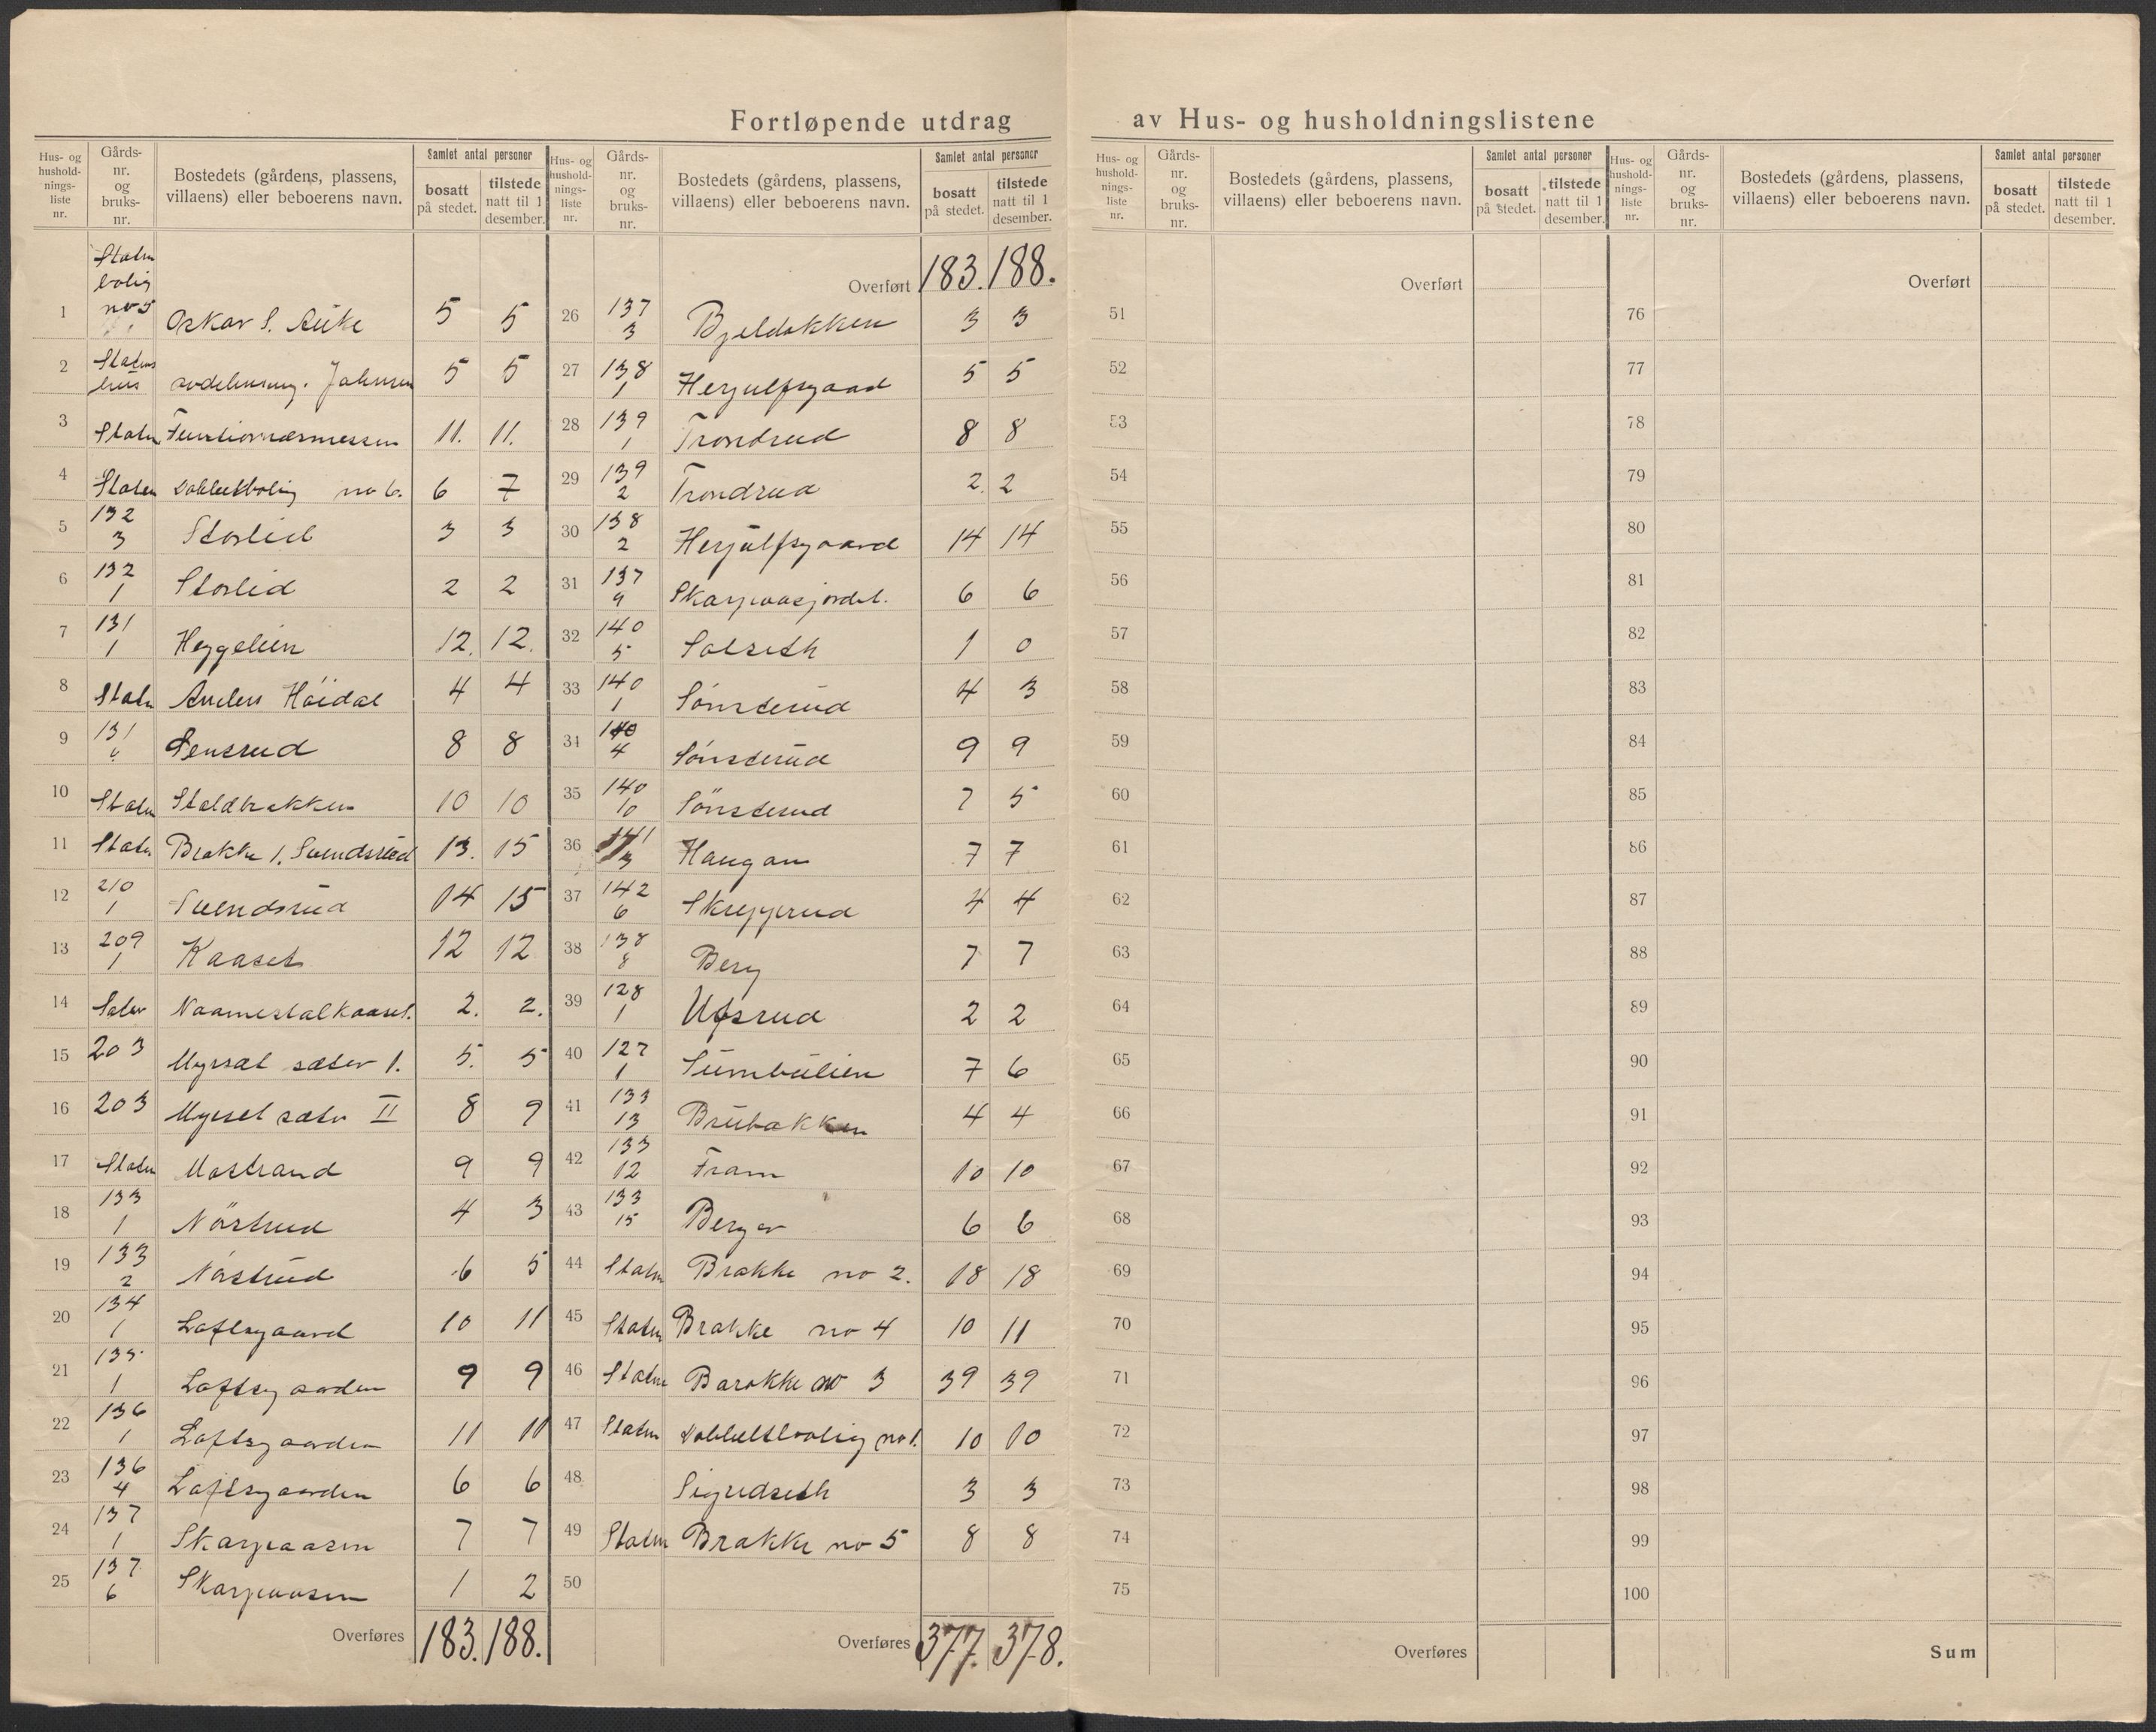 Fortløpende utdrag av Hus- og husholdningslistene
Hus- og husholdnings- liste nr. | Gårds- nr. og bruks- nr. | Bostedets (gårdens, plassens, villaens) eller beboerens navn. | Samlet antal personer bosatt på stedet. | tilstede natt til 1 desember.
1 Staten bolig no 5 Oskar S. 5 5
2 Statens hus Johnsen 5 5
3 Staten Funktionærmessen 11. 11.
4 Staten Dobbeltbolig no 6. 6 7
5 132 3 Storlid 3 3
6 132 1 Storlid 2 2
7 131 1 Heggelien 12. 12.
8 Staten Anders Höidal 4 4
9 131 8 8
10 Staten Staldbakken 10 10
11 Staten Brakke 1. Svendsrud 13. 15
12 210 1 Svendsrud 14 15
13 209 1 Kaaset 12 12
14 2. 2.
15 203 Myrsæt sæter 1. 5. 5
16 203 Myrset sæter II 8 9
17 Staten Mostrand 9 9
18 133 1 Nörstrud 4 3
19 133 2 Nörstrud 6 5
20 134 1 Loftsgaard 10 11
21 135 1 Loftsgaarden 9 9
22 136 1 Loftsgaarden 11 11
23 136 4 Loftsgaarden 6 6
24 137 1 Skarpaasen 7 7
25 137 6 Skarpaasen 1 2
Overføres 183. 188.
Hus- og husholdnings- liste nr. | Gårds- nr. og bruks- nr. | Bostedets (gårdens, plassens, villaens) eller beboerens navn. | Samlet antal personer bosatt på stedet. | tilstede natt til 1 desember.
Overført 183. 188.
26 137 3 Bjeldokken 3 3
27 138 1 Herjulfsgaard 5 5
28 139 1 Trondrud 8 8
29 139 2 Trondrud 2. 2
30 138 2 Herjulfsgaard 14 14
31 137 9 Skarpaasjordet. 6 6
32 140 5 Solseth 1 0
33 140 1 Sønsterud 4 3
34 140 4 Sønsterud 9 9
35 140 10 Sönsterud 7 5
36 141 3 Haugan 7 7
37 142 6 Skrepperud 4 4
38 138 8 Berg 7 7
39 128 1 Ufsrud 2 2
40 127 1 Sumbulien 7 6
41 133 13 Brubakken 4 4
42 133 12 Fram 10 10
43 133 15 Berger 6 6
44 Staten Brakke no 2. 18 18
45 Staten Brakke no 4 10 11
46 Staten Barakke no 3 39 39
47 Staten Dobbeltbolig no 1. 10 10
48 Sigridseth 3 3
49 Staten Brakke no 5 8 8
50
Overføres 377. 378.
Hus- og husholdnings- liste nr. | Gårds- nr. og bruks- nr. | Bostedets (gårdens, plassens, villaens) eller beboerens navn. | Samlet antal personer bosatt på stedet. | tilstede natt til 1 desember.
Overført
51
52
53
54
55
56
57
58
59
60
61
62
63
64
65
66
67
68
69
70
71
72
73
74
75
Overføres
Hus- og husholdnings- liste nr. | Gårds- nr. og bruks- nr. | Bostedets (gårdens, plassens, villaens) eller beboerens navn. | Samlet antal personer bosatt på stedet. | tilstede natt til 1 desember.
Overført
76
77
78
79
80
81
82
83
84
85
86
87
88
89
90
91
92
93
94
95
96
97
98
99
100
Sum